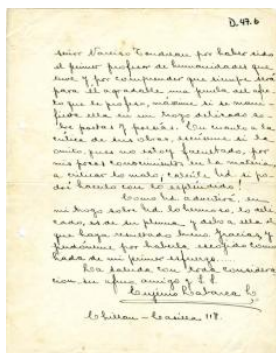 D. 47.6
señor Narciso Tondreau por haber sido
el primer profesor de humanidades que
tuve y por comprender que siempre será
para él agradable una prueba del afec-
to que le profeso, máxime si se mani-
fiesta ella en un trozo delicado so-
bre poetas y poesías. En cuanto a la
crítica de sus obras, excúseme si la
omito, pues no estoy facultado, por
mis pocos conocimientos en la materia
a criticar lo malo, calcule Ud si po-
dré hacerlo con lo espléndido!
Como Ud advertirá, en
mi trozo sobre Ud. lo hermoso, lo deli-
cado, es de su pluma y debo a ella el
que haya resultado bueno. Gracias y
perdóneme por haberla escogido como
hada de mi primer esfuerzo.
La saluda con toda considera
ción su afmo amigo y S. S.
Eugenio Labarca L.
Chillan - Casilla 118.